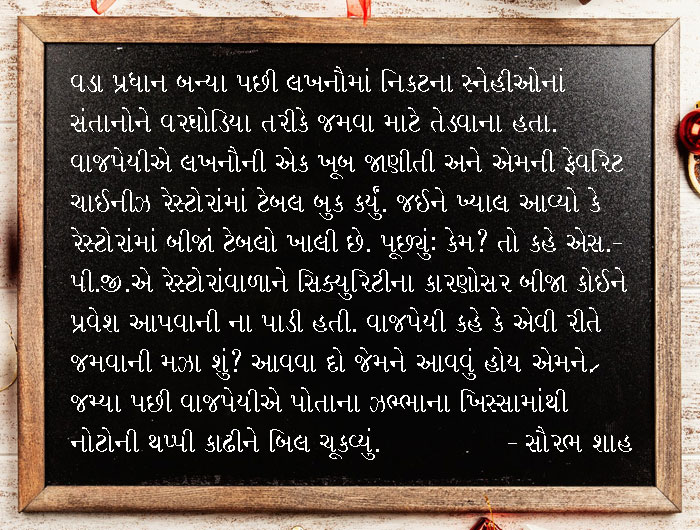 વડા પ્રધાન બન્યા પછી લખનૌમાં નિકટના સ્નેહીઓનાં
સંતાનોને વરઘોડિયા તરીકે જમવા માટે તેડવાના હતા.
વાજપેયીએ લખનૌની એક ખૂબ જાણીતી અને એમની ફેવરિટ
ચાઈનીઝ રેસ્ટોરાંમાં ટેબલ બુક કર્યું. જઈને ખ્યાલ આવ્યો કે
રેસ્ટોરાંમાં બીજાં ટેબલો ખાલી છે. પૂછ્યુંઃ કેમ? તો કહે એસ.-
પી.જી.એ રેસ્ટોરાંવાળાને સિક્યુરિટીના કારણોસર બીજા કોઈને
પ્રવેશ આપવાની ના પાડી હતી. વાજપેયી કહે કે એવી રીતે
જમવાની મઝા શું? આવવા દો જેમને આવવું હોય એમને.
જમ્યા પછી વાજપેયીએ પોતાના ઝભ્ભાના ખિસ્સામાંથી
નોટોની થપ્પી કાઢીને બિલ ચૂકવ્યું. - સૌરભ શાહ